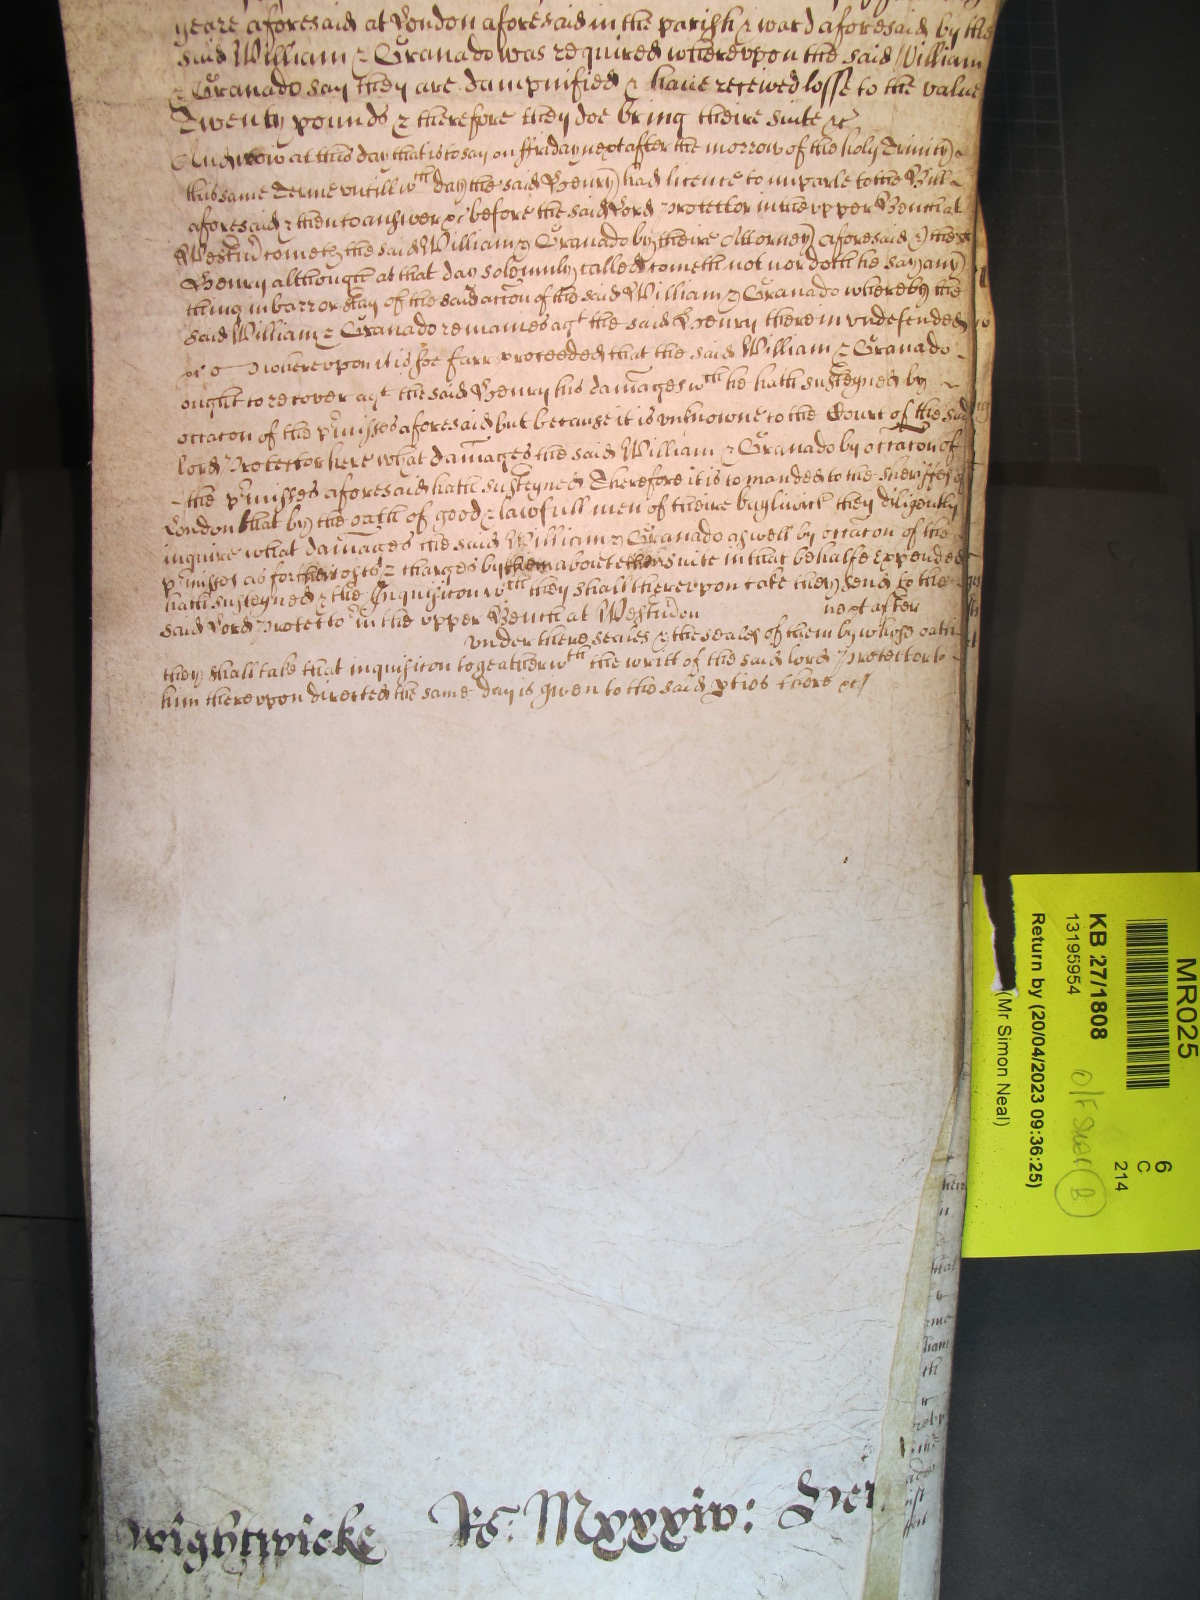 yeare aforesaid at London aforesaid in the parish & ward aforesaid by the
said William & Granado was required wherevpon the said William
& Granado say they are dampnified & haue receved losse to the value
Twenty pounds & therefore they doe bring theire suite &c
And now at this day that is to say on ffriday next after the morrow of the holy Trinity
this same Terme vntill wch day the said Henry had licence to imparle to the Bill
aforesaid & then to answer &c before the said Lord Protector in the vpper Bench at
Westm̃ cometh the said William & Granado by theire Attorney aforesaid & the
Henry although at that day solemnly called cometh not nor doth he say any
thing in barr or stay of the said accõn of the said William & Granado whereby the
said William & Granado remaines agt the said Henry therein vndefended
&c Wherevpon it is soe farr proceeded that the said William & Granado
ought to recover agt the said Henry his damages wch he hath susteyned by
occacõn of the p̃misses aforesaid but because it is vnknowne to the Court of the said
lord Protector here what damages the said William & Granado by occacõn of
the p̃misses aforesaid hath susteyned Therefore it is cõmanded to the Sheriffes of
London that by the oath of good & lawfull men of theire bayliwick they diligently
inquire what damages the said William & Granado aswell by occacõn of the
p̃misses as for their costs & charges by them about their suite in that behalfe expended
hath susteyned & the Inquisicõn wch they shall therevpon take they send to the
said Lord Protector in the vpper Bench at Westm̃ on next after
vnder there seales & the seales of them by whose oath
they shall take that inquisicõn togeather wth the writt of the said lord Protector to
him therevpon directed the same day is given to the said pties there &c
Wightwicke Rs: Mxxxiv: Ter.
MR025
KB 27/1808
13195954
Return by (20/04/2023 09:36:25)
(Mr Simon Neal)
6
C
214
B